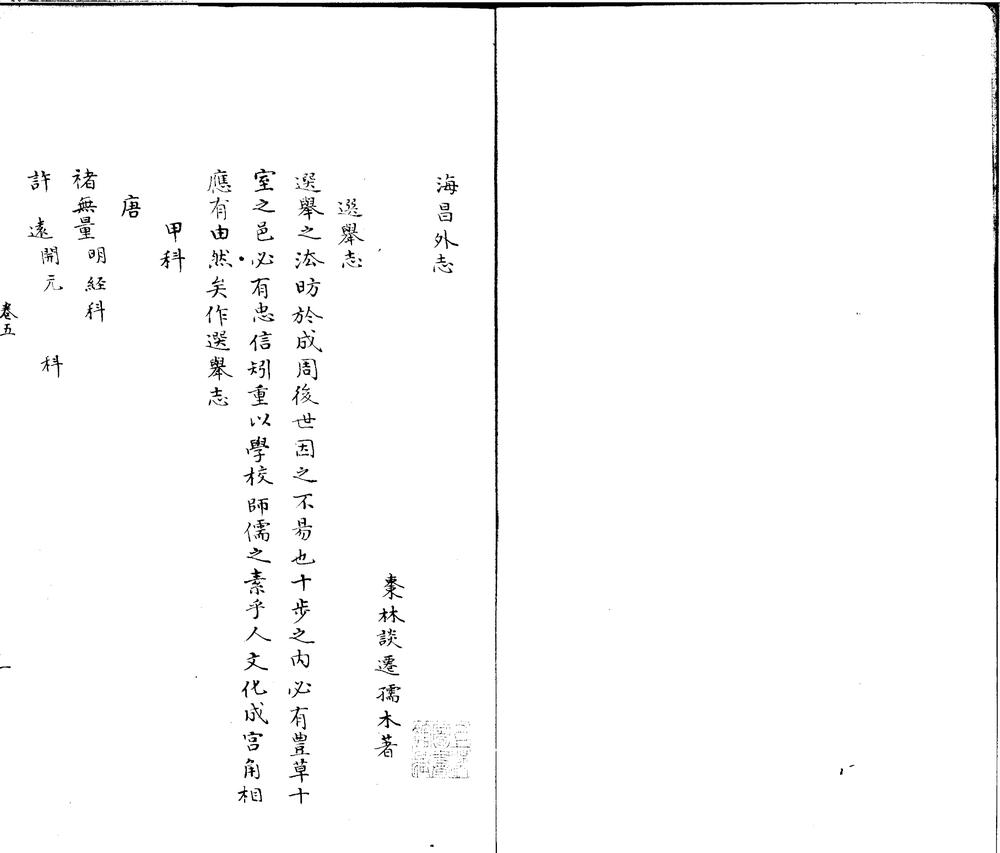 海昌外志
棗林談遷孺木著
選舉志
選舉之法昉於成周後世因之不易也十步之內必有豊草十
室之邑必有忠信矧重以學校師儒之素乎人文化成宮角相
應有由然矣作選舉志
甲科
唐
禇無量明經科
許遠開元 科
卷五
一